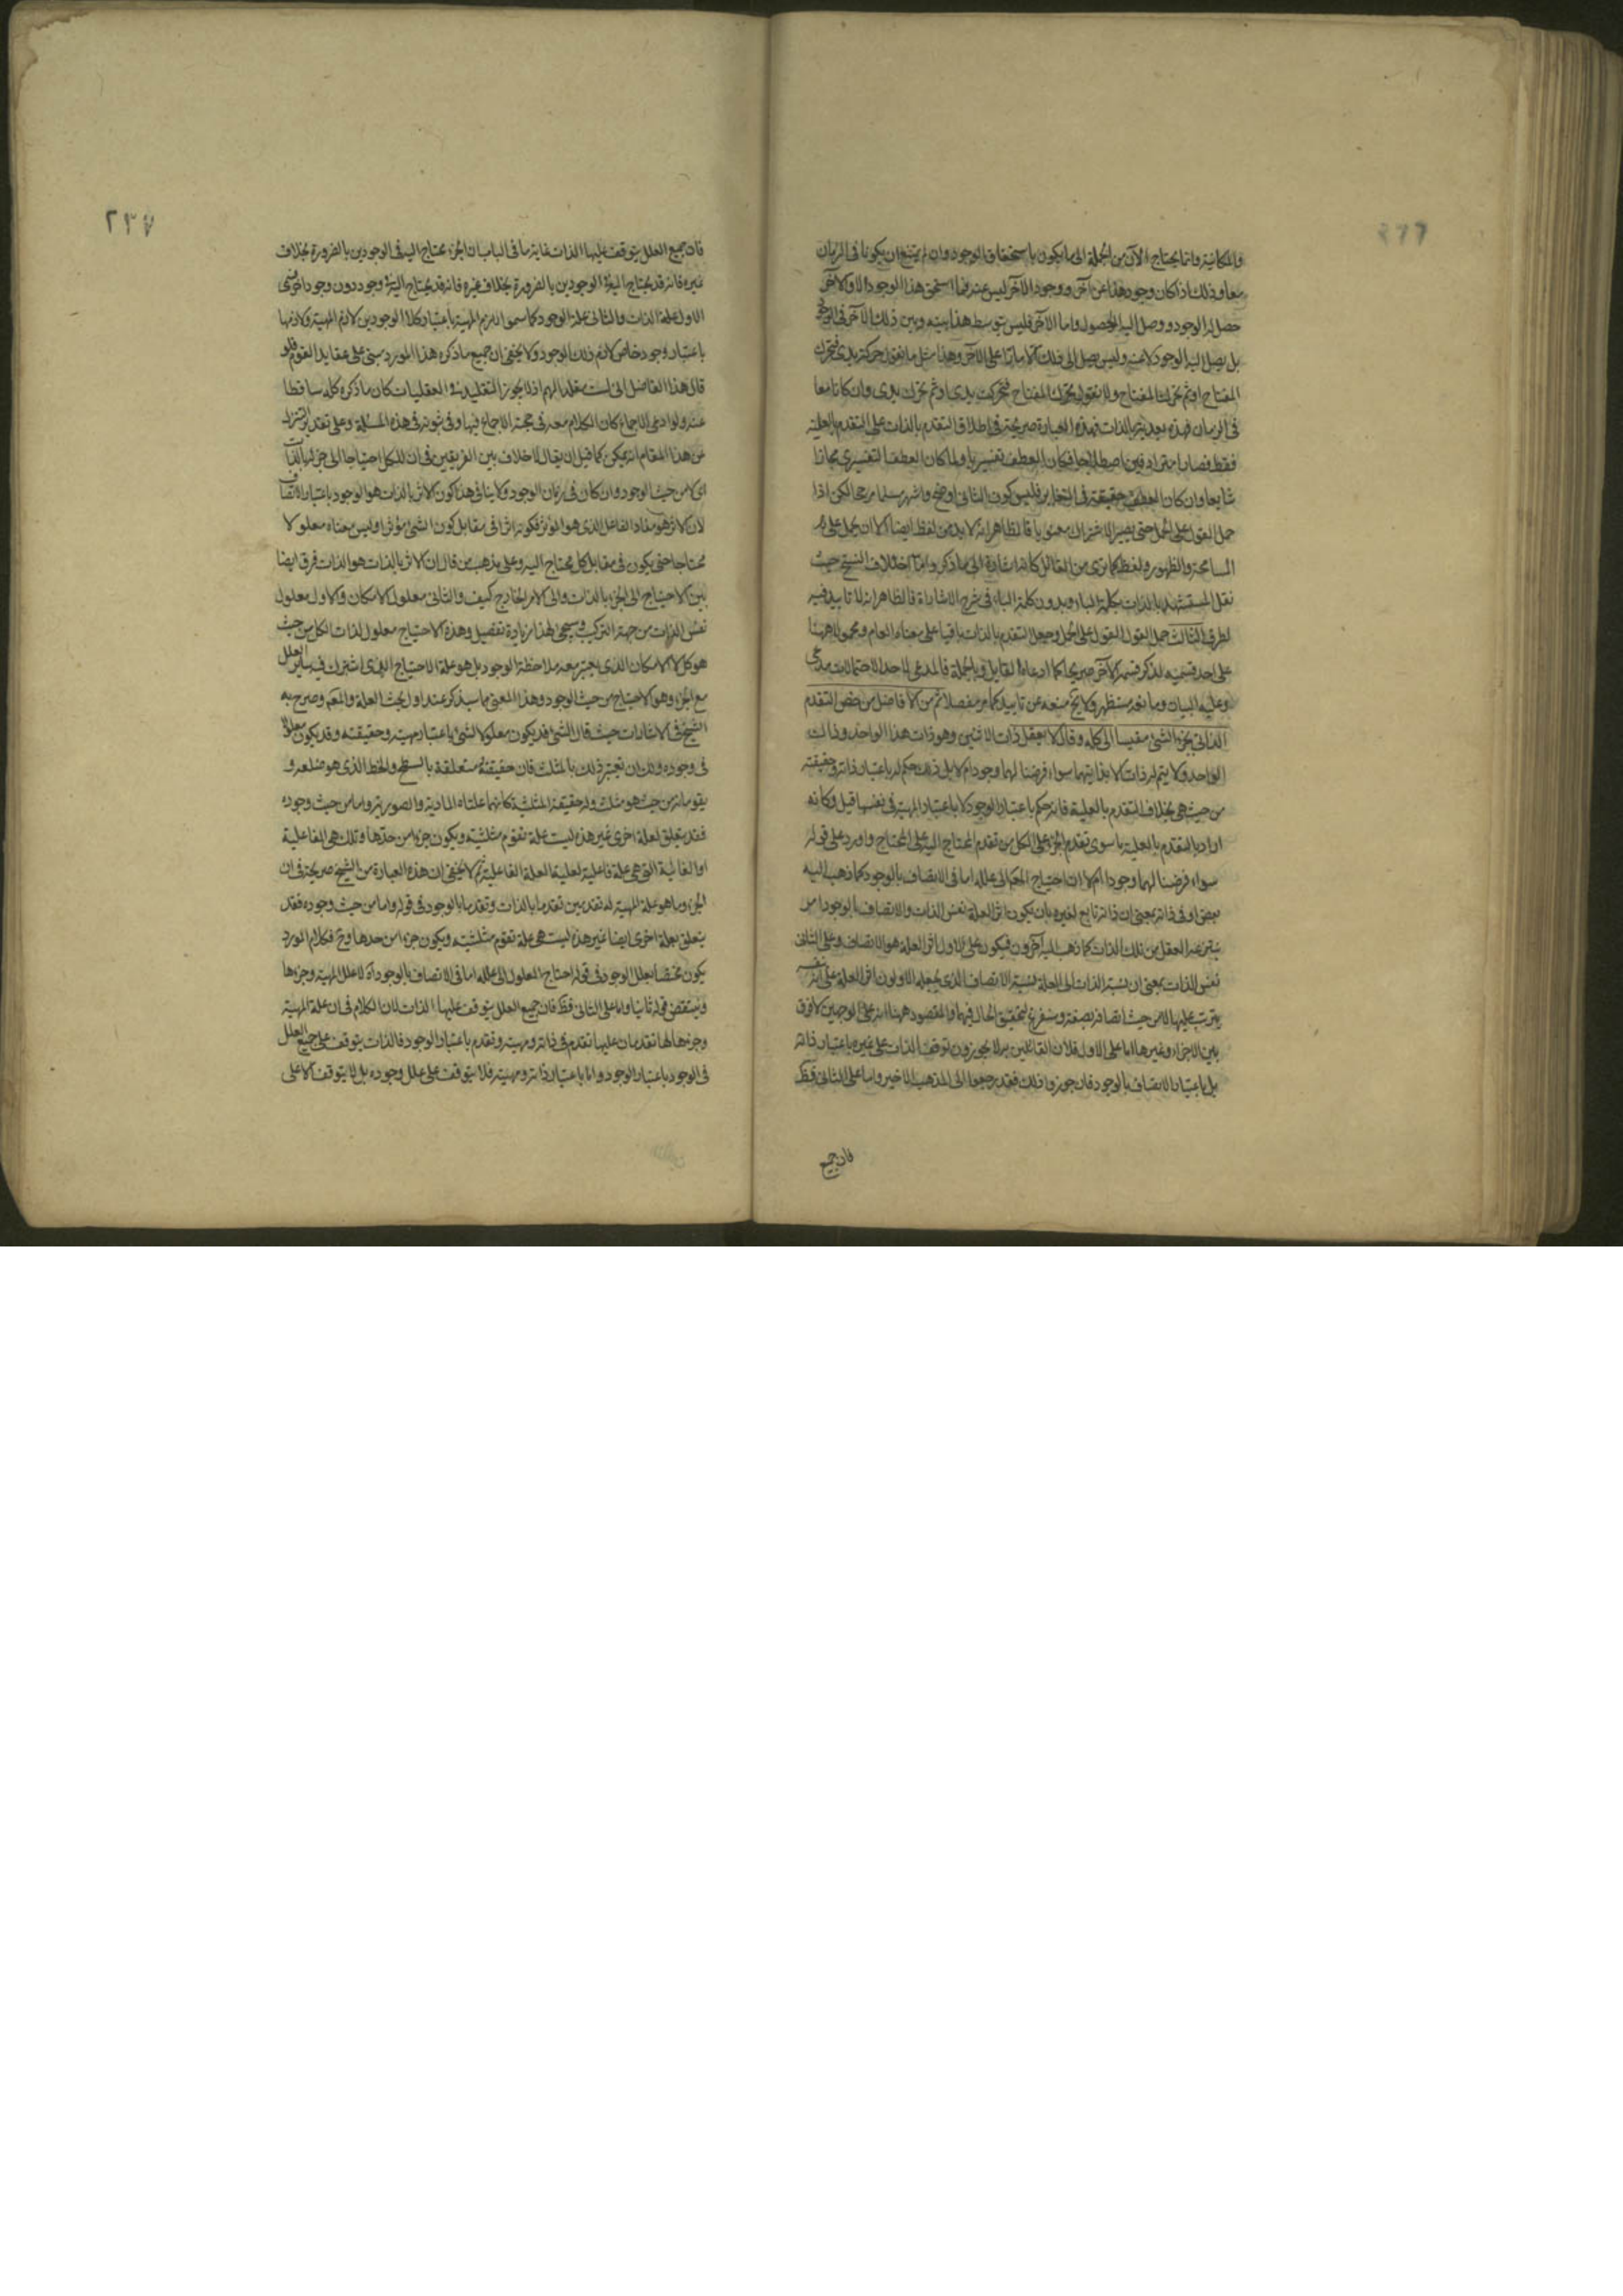 ٢٣٦
والمكانية وانما يحتاج الآن من الجملة الى ما يكون باستحقاق الوجود وان لم يمتنع ان يكونا فى الزمان
معا وذلك اذا كان وجود هذا عن آخر ووجود الآخر ليس عنه فما استحق هذا الوجود الا والآخر
حصل له الوجود ووصل اليه الحصول واما الآخر فليس يتوسط هذا بينه وبين ذلك الآخر فى الوجود
بل يصل اليه الوجود لا عنه وليس يصل الى ذلك الا مارا على الآخر وهذا مثل ما تقول حركت يدى فتحرك
المفتاح او ثم تحرك المفتاح ولا تقول تحرك المفتاح فتحركت يدى او ثم تحرك يدى وان كانا معا
فى الزمان فهذه بعدية بالذات فهذه العبارة صريحة فى اطلاق التقدم بالذات على التقدم بالعلية
فقط فصارا مترادفين اصطلاحا فكان العطف تفسيريا ولما كان العطف التفسيرى مجازا
شايعا وان كان العطف حقيقة فى التغاير فليس كون الثانى اوضح واشهر مسلما مرجحا لكن اذا
حمل القول على الحمل حتى يصير الاشتراك معنويا فالظاهر انه لا بد من لفظ ايضا الا ان يحمل على
المسامحة والظهور ولفظ كما ترى من القائل كانه اشارة الى ما ذكر واما اختلاف النسخ حيث
نقل المستشهد بالذات بكلمة الباء وبدون كلمة الباء فى شرح الاشارة فالظاهر انه لا تاييد فيه
لطرف الثالث حمل القول المقول على الحمل وجعل التقدم بالذات باقيا على معناه العام ومحمولا ههنا
على احد قسميه لذكر قسمه الآخر صريحا كما ادعاه القايل وبالجملة فالمدعى لاحد الاحتمالات مدعى
وعليه البيان ومانعه مستظهر ولا يتجه منعه عن تاييد كما مر مفصلا ثم من الافاضل من خص التقدم
الذاتى بجزء الشئ مقيسا الى كله وقال لا يعقل ذات الاثنين وهو ذات هذا الواحد وذلك
الواحد ولا يتم له ذات الا بذاتيهما سواء فرضنا لهما وجودا ام لا بل ذلك حكم له باعتبار ذاته وحقيقته
من حيث هى بخلاف التقدم بالعلية فانه حكم باعتبار الوجود لا باعتبار المهية فى نفسها قيل وكانه
اراد بالتقدم بالعلية ما سوى تقدم الجزء على الكل من تقدم المحتاج اليه على المحتاج واورد على قوله
سواء فرضنا لهما وجودا ام لا ان احتياج المعلول الى علله اما فى الاتصاف بالوجود كما ذهب اليه
بعض او فى ذاته بمعنى ان ذاته تابع لغيره بان يكون اثر العلة نفس الذات والاتصاف بالوجود امر
ينتزعه العقل من تلك الذات كما ذهب اليه آخرون فيكون على الاول اثر العلة هو الاتصاف وعلى الثانى
نفس الذات بمعنى ان نسبة الذات الى العلة نسبة الاتصاف الذى يجعله الاولون اثر العلة على انه نفسه
يترتب عليها لا من حيث اتصافه بصفة وسنفرغ لتحقيق الحال فيهما والمقصود ههنا انه على الوجهين لا فرق
بين الاجزاء وغيرها اما على الاول فلان القائلين به لا يجوزون توقف الذات على غيره باعتبار ذاته
بل باعتبار الاتصاف بالوجود فان جوزوا ذلك فقد رجعوا الى المذهب الاخير واما على الثانى فقط
فان جميع
٢٣٧
فان جميع العلل يتوقف عليها الذات غاية ما فى الباب ان الجزء يحتاج اليه فى الوجودين بالضرورة بخلاف
غيره فانه قد يحتاج اليه فى الوجودين بالضرورة بخلاف غيره فانه قد يحتاج اليه فى وجود دون وجود آخر فسمى
الاول علة الذات والثانى علة الوجود كما سموا لازم المهية باعتبار كلا الوجودين لازم المهية ولازمها
باعتبار وجود خاص لازم ذلك الوجود ولا يخفى ان جميع ما ذكره هذا المورد مبنى على عقايد القوم فلو
قال هذا الفاضل انى لست مقلدا لهم اذ لا يجوز التقليد فى العقليات كان ما ذكره كله ساقطا
عنه ولو ادعى الاجماع كان الكلام معه فى حجة الاجماع فيها وفى ثبوته فى هذه المسئلة وعلى تقدير التنزل
عن هذا المقام انه يمكن كما قيل ان يقال لا خلاف بين الفريقين فى ان للكل احتياجا الى جزئه بالذات
اى لا من حيث الوجود وان كان فى زمان الوجود ولا ينافى هذا كون الاثر بالذات هو الوجود باعتبار الاتصاف
لان الاثر هو مفاد الفاعل الذى هو المؤثر فكونه اثرا فى مقابل كون الشئ مؤثرا وليس معناه معلولا
محتاجا حتى يكون فى مقابل كل محتاج اليه وعلى مذهب من قال ان الاثر بالذات هو الذات فرق ايضا
بين الاحتياج الى الجزء بالذات والى الامر الخارج كيف والثانى معلول الامكان والاول معلول
نفس الذات من جهة التركب وسيجئ لهذا زيادة تفصيل وهذه الاحتياج معلول لذات الكل من حيث
هو كل لا الامكان الذى يعتبر معه ملاحظة الوجود بل هو علة الاحتياج الذى اشترك فيه ساير العلل
مع الجزء وهو الاحتياج من حيث الوجود وهذا المعنى مما سيذكر عند اول بحث العلة والمعلول وصرح به
الشيخ فى الاشارات حيث قال الشئ قد يكون معلولا لشئ باعتبار مهيته وحقيقته وقد يكون معلولا
فى وجوده ولك ان تعتبر ذلك بالمثلث فان حقيقته متعلقة بالسطح والخط الذى هو ضلعه و
يقومانه من حيث هو مثلث وله حقيقة المثلثية كانهما علتاه المادية والصورية واما من حيث وجوده
فقد يتعلق لعلة اخرى غير هذه ليست علة تقوم مثلثيته ويكون جزءا من حدها وتلك هى الفاعلية
او الغائية التى هى علة فاعلية لعلية العلة الفاعلية ثم لا يخفى ان هذه العبارة من الشيخ صريحة فى ان
الجزء وما هو علة المهية له تقدمين تقدما بالذات وتقدما بالوجود فى قوله واما من حيث وجوده فقد
يتعلق بعلة اخرى ايضا غير هذه ليست هى علة تقوم مثلثيته ويكون جزءا من حدها وح فكلام المورد
يكون مختصا بعلل الوجود فى قوله احتياج المعلول الى علله اما فى الاتصاف بالوجود آه لا علل المهية وجزءها
وينتقض قوله ثانيا واما على الثانى فقط فان جميع العلل يتوقف عليها الذات لان الكلام فى ان علة المهية
وجزءها لها تقدمان عليها تقدم فى ذاته ومهيته وتقدم باعتبار الوجود فالذات يتوقف على جميع العلل
فى الوجود باعتبار الوجود واما باعتبار ذاته ومهيته فلا يتوقف على علل وجوده بل لا يتوقف الا على